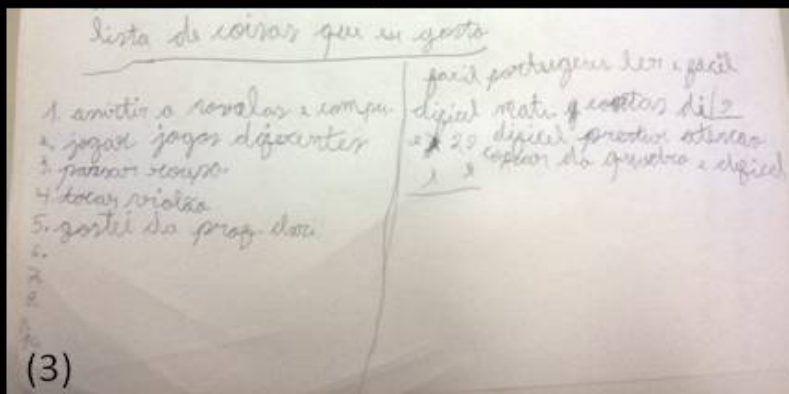 lista de coisas que eu gosto
1. asistir a novalas e compu
2. jogar jogos diferentes
3. passar roupa
4. tocar violão
5. gostei da prof.
6.
7.
8.
facil portugeus ler e facil
dificel mate contas di
dificel prestar atencao
copiar do quadro e dificel
(3)